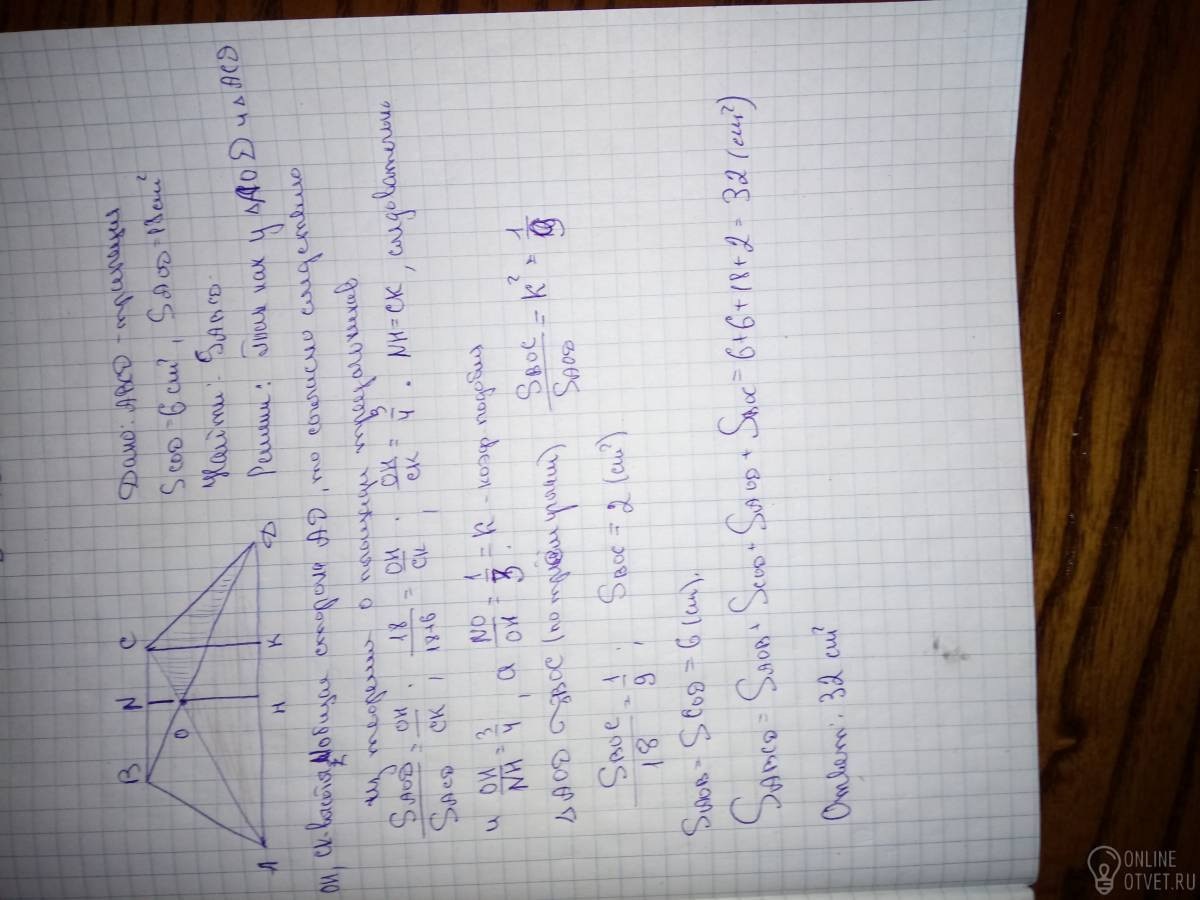 B N C
O
A H K D
Дано: ABCD - трапеция
S COD = 6 см², S AOD = 18 см²
Найти: S ABCD
Решение: Так как у △AOD и △ACD
OH, CK высоты, общая сторона AD, то согласно следствию
из теоремы о площади треугольников
S AOD / S ACD = OH / CK ; 18 / 18+6 = OH / CK ; OH / CK = 3/4 . NH = CK, следовательно
и OH / NH = 3/4 , а NO / OH = 1/3 = K - коэф подобия
△AOD ∾ △BOC (по трём углам) S BOC / S AOD = K² = 1/9
S BOC / 18 = 1/9 ; S BOC = 2 (см²)
S AOB = S COD = 6 (см).
S ABCD = S AOB + S COD + S AOD + S BOC = 6+6+18+2 = 32 (см²)
Ответ: 32 см²
ONLINE
OTVET.RU